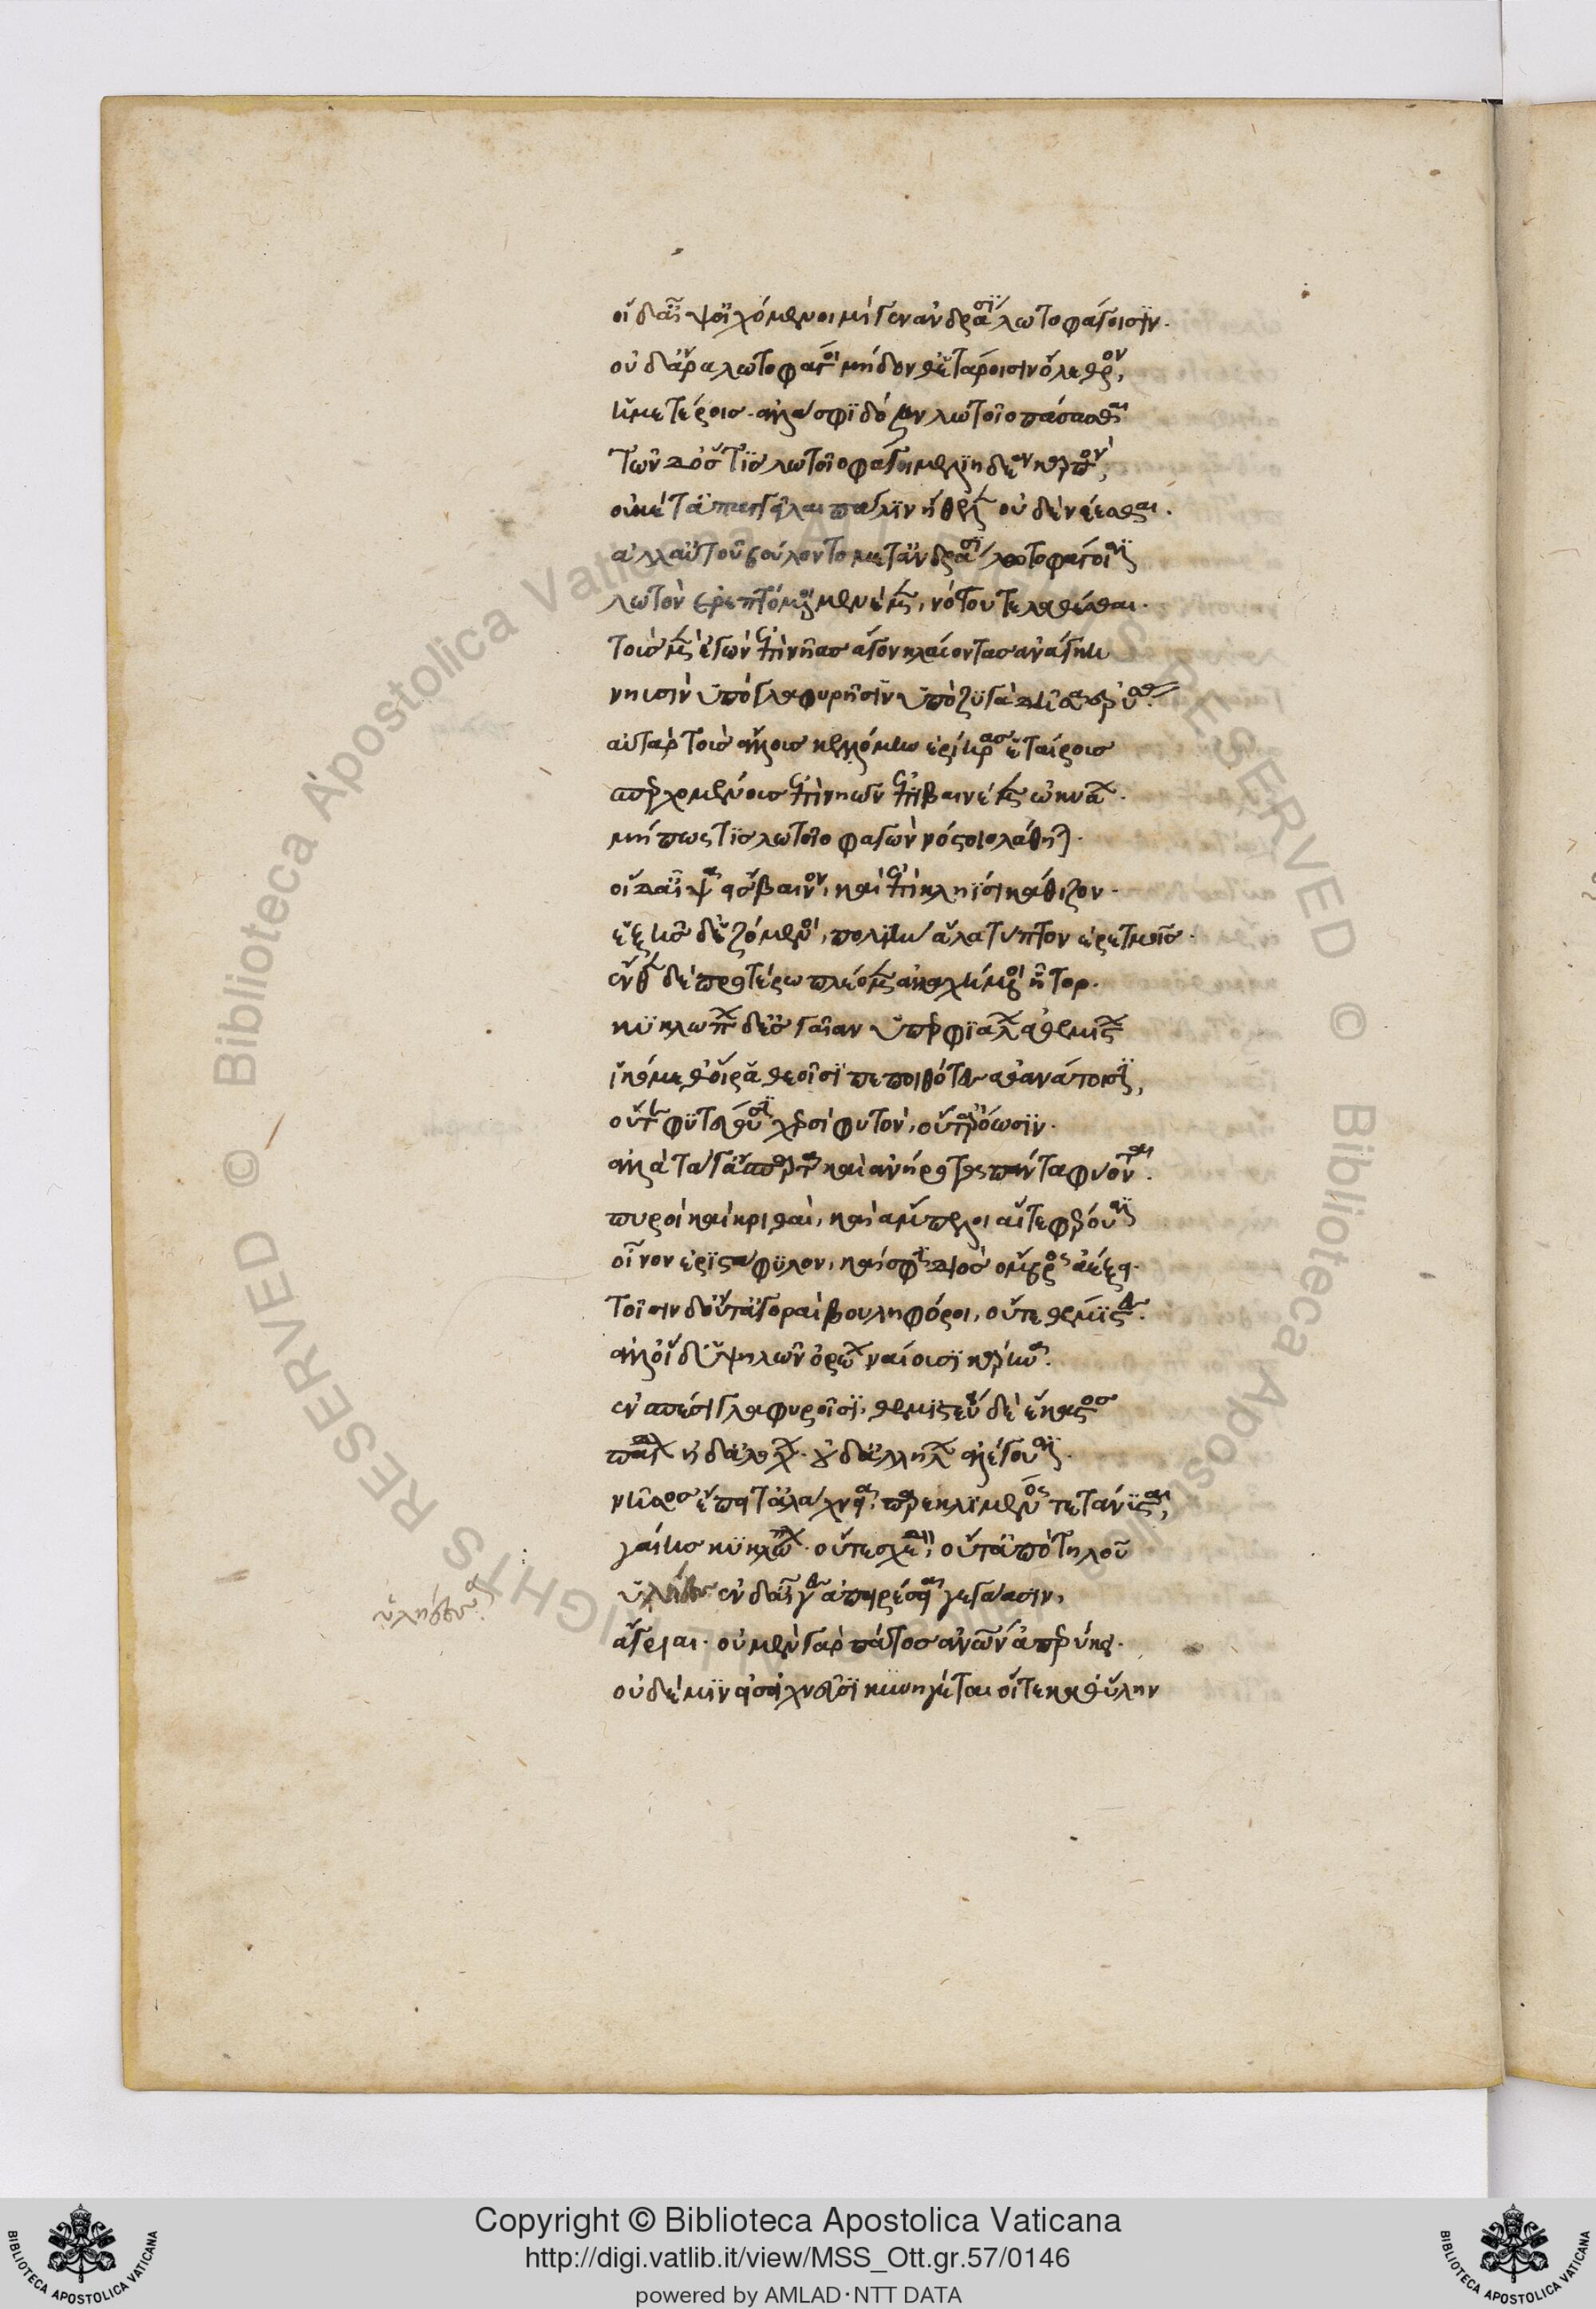 οἱ δ' αἶψ' οἰχόμενοι μίγεν ἀνδράσι λωτοφάγοισιν.
οὐδ' ἄρα λωτοφάγοι μήδονθ' ἑτάροισιν ὄλεθρον,
ἡμετέροις. ἀλλά σφι δόσαν λωτοῖο πάσασθαι
τῶν δ' ὅστις λωτοῖο φάγῃ μελιηδέα καρπόν,
οὐκέτ' ἀπαγγεῖλαι πάλιν ἤθελεν οὐδὲ νέεσθαι.
ἀλλ' αὐτοῦ βούλοντο μετ' ἀνδράσι λωτοφάγοισι
λωτὸν ἐρεπτόμενοι μενέμεν, νόστου τε λαθέσθαι.
τοὺς μὲν ἐγὼν ἐπὶ νῆας ἄγον κλαίοντας ἀνάγκῃ
νηυσὶν ὑπὸ γλαφυρῇσιν ὑπὸ ζυγὰ δῆσα ἐρύσσας.
αὐτὰρ τοὺς ἄλλους κελόμην ἐρίηρας ἑταίρους
σπερχομένους ἐπὶ νηῶν ἐπιβαινέμεν ὠκειάων.
μήπως τις λωτοῖο φαγὼν νόστοιο λάθηται.
οἱ δ' αἶψ' εἴσβαινον, καὶ ἐπὶ κληῖσι κάθιζον.
ἑξῆς δ' ἑζόμενοι, πολιὴν ἅλα τύπτον ἐρετμοῖς.
ἔνθεν δὲ προτέρω πλέομεν ἀκαχήμενοι ἦτορ.
κυκλώπων δ' ἐς γαῖαν ὑπερφιάλων ἀθεμίστων
ἱκόμεθ' οἵ ῥα θεοῖσι πεποιθότες ἀθανάτοισι,
οὔτε φυτεύουσι χερσὶ φυτόν, οὔτ' ἀρόωσιν.
ἀλλὰ τά γ' ἄσπαρτα καὶ ἀνήροτα πάντα φύονται.
πυροὶ καὶ κριθαί, καὶ ἄμπελοι αἵτε φέρουσι
οἶνον ἐριστάφυλον, καί σφιν διὸς ὄμβρος ἀέξει.
τοῖσιν δ' οὔτ' ἀγοραὶ βουληφόροι, οὔτε θέμιστες.
ἀλλ' οἵ δ' ὑψηλῶν ὀρέων ναίουσι κάρηνα.
ἐν σπέσι γλαφυροῖσι, θεμιστεύει δὲ ἕκαστος
παίδων ἠδ' ἀλόχων. οὐδ' ἀλλήλων ἀλέγουσι.
νῆσος ἔπειτα λάχεια, παρεκ λιμένος τετάνυσται,
γαίης κυκλώπων. οὔτε σχεδόν, οὔτ' ἀποτηλοῦ
ὑλήεσσ' ἐν δ' αἶγες ἀπειρέσιαι γεγάασιν,
ὑλήεσσα.
ἄγριαι. οὐ μὲν γὰρ πάτος ἀνθρώπων ἀπερύκει.
οὐδέ μιν εἰσοιχνεῦσι κυνηγέται οἵτε καθ' ὕλην
Copyright © Biblioteca Apostolica Vaticana
http://digi.vatlib.it/view/MSS_Ott.gr.57/0146
powered by AMLAD·NTT DATA
BIBLIOTECA APOSTOLICA VATICANA
BIBLIOTECA APOSTOLICA VATICANA
© Biblioteca Apostolica Vaticana ALL RIGHTS RESERVED © Biblioteca Apostolica Vaticana ALL RIGHTS RESERVED